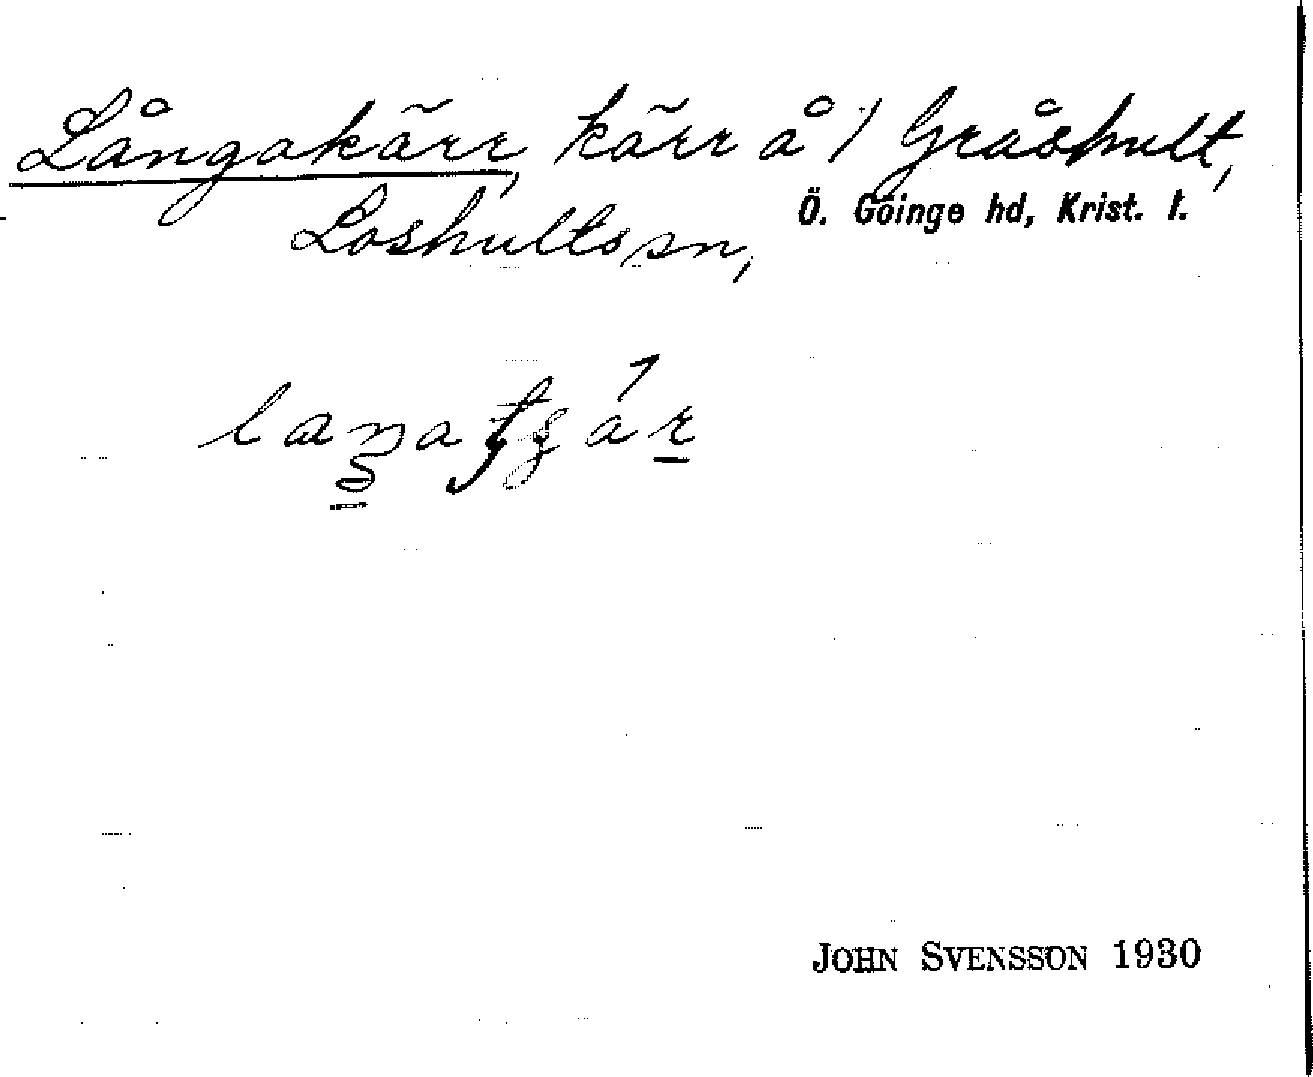 Långakärr, kärr å 1/ Gråshult,
Loshults sn,
Ö. Göinge hd, Krist. l.
JOHN SVENSSON 1930